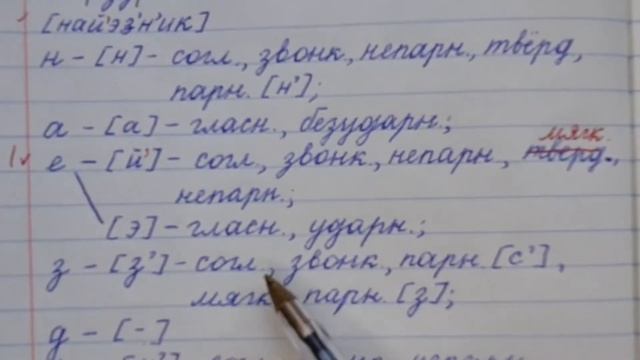 [най'эз'н'ик]
н - [н] - согл., звонк., непарн., твёрд,
парн. [н'];
а - [а] - гласн., безударн.;
мягк.
е - [й'] - согл., звонк., непарн., тверд.,
непарн.;
[э] - гласн., ударн.;
з - [з'] - согл., звонк., парн. [с'],
мягк парн. [з];
д - [-]